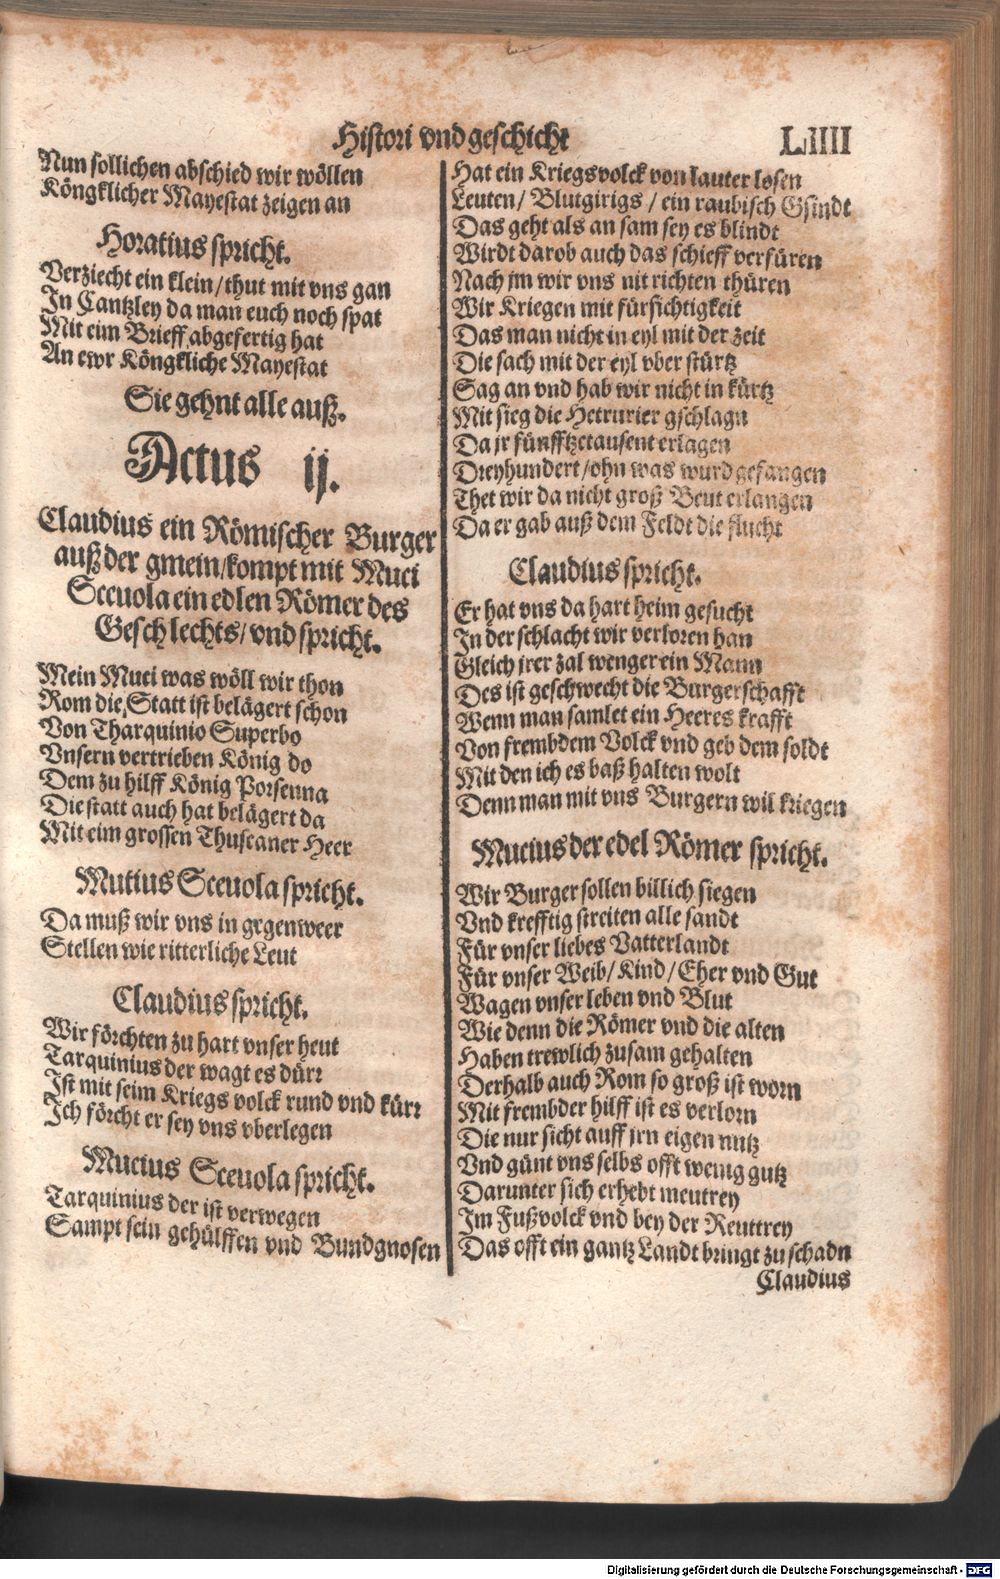 Histori vnd geschicht
LIIII
Nun sollichen abschied wir wöllen
Köngklicher Mayestat zeigen an
Horatius spricht.
Verziecht ein klein/ thut mit vns gan
In Cantzley da man euch noch spat
Mit eim Brieff abgefertig hat
An ewr Köngkliche Mayestat
Sie gehnt alle auß.
Actus ij.
Claudius ein Römischer Burger
auß der gmein/ kompt mit Muci
Sceuola ein edlen Römer des
Geschlechts/ vnd spricht.
Mein Muci was wöll wir thon
Rom die Statt ist belägert schon
Von Tharquinio Superbo
Vnsern vertrieben König do
Dem zu hilff König Porsenna
Die statt auch hat belägert da
Mit eim grossen Thuscaner Heer
Mutius Sceuola spricht.
Da muß wir vns in gegenweer
Stellen wie ritterliche Leut
Claudius spricht.
Wir förchten zu hart vnser heut
Tarquinius der wagt es dürr
Ist mit seim Kriegs volck rund vnd kürr
Ich förcht er sey vns vberlegen
Mucius Sceuola spricht.
Tarquinius der ist verwegen
Sampt sein gehülffen vnd Bundgnosen
Hat ein Kriegsvolck von lauter losen
Leuten/ Blutgirigs/ ein raubisch Gsindt
Das geht als an sam sey es blindt
Wirdt darob auch das schieff verfüren
Nach jm wir vns nit richten thüren
Wir Kriegen mit fürsichtigkeit
Das man nicht in eyl mit der zeit
Die sach mit der eyl vber stürtz
Sag an vnd hab wir nicht in kürtz
Mit sieg die Hetrurier gschlagn
Da jr fünfftzetausent erlagen
Dreyhundert/ ohn was wurd gefangen
Thet wir da nicht groß Beut erlangen
Da er gab auß dem Feldt die flucht
Claudius spricht.
Er hat vns da hart heim gesucht
In der schlacht wir verloren han
Gleich jrer zal wenger ein Mann
Des ist geschwecht die Burgerschafft
Wenn man samlet ein Heeres krafft
Von frembdem Volck vnd geb dem soldt
Mit den ich es baß halten wolt
Denn man mit vns Burgern wil kriegen
Mucius der edel Römer spricht.
Wir Burger sollen billich siegen
Vnd krefftig streiten alle sandt
Für vnser liebes Vatterlandt
Für vnser Weib/ Kind/ Eher vnd Gut
Wagen vnser leben vnd Blut
Wie denn die Römer vnd die alten
Haben trewlich zusam gehalten
Derhalb auch Rom so groß ist worn
Mit frembder hilff ist es verlorn
Die nur sicht auff jrn eigen nutz
Vnd günt vns selbs offt wenig gutz
Darunter sich erhebt meutrey
Im Fußvolck vnd bey der Reuttrey
Das offt ein gantz Landt bringt zu schadn
Claudius
Digitalisierung gefördert durch die Deutsche Forschungsgemeinschaft - DFG